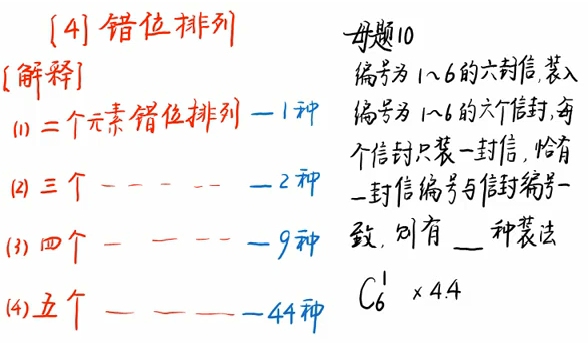 [4] 错位排列
[解释]
(1) 二个元素错位排列 — 1种
(2) 三个 - - - - - — 2种
(3) 四个 - - - - - — 9种
(4) 五个 — — — — 44种
母题10
编号为 1~6 的六封信,装入
编号为 1~6 的六个信封,每
个信封只装一封信,恰有
一封信编号与信封编号一
致,则有 __ 种装法
C₆¹ × 4.4